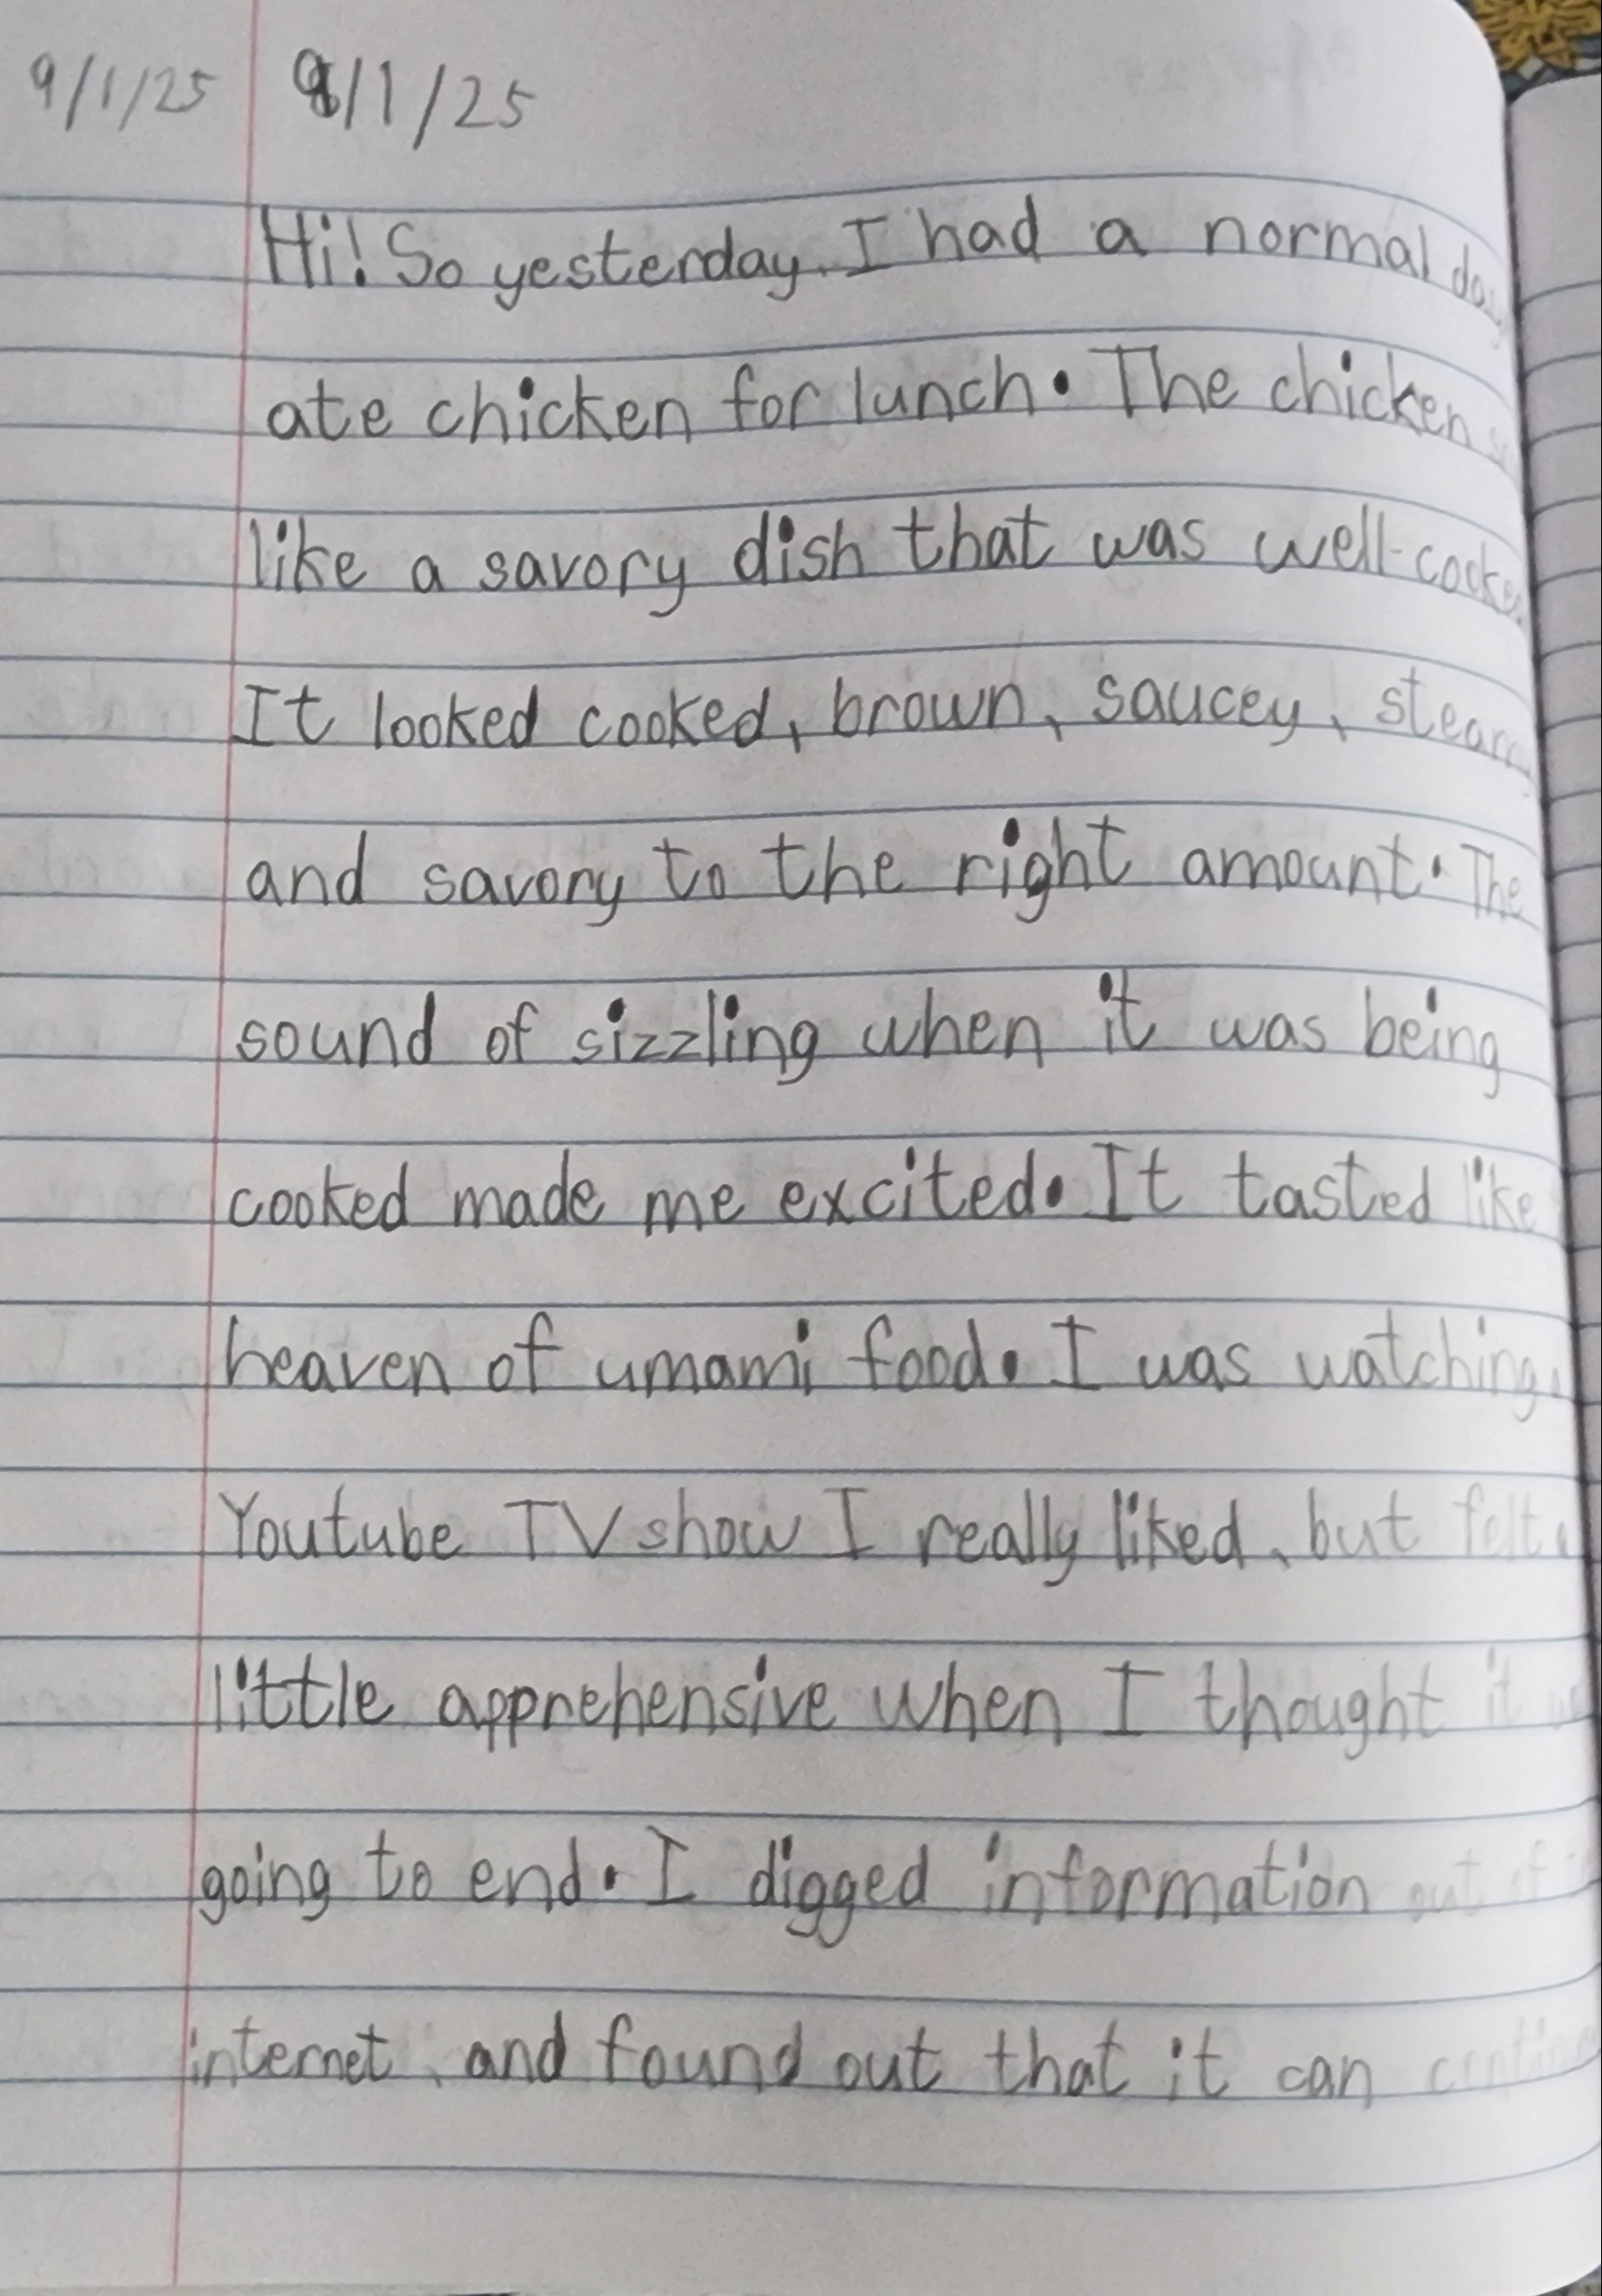 9/1/25 9/1/25
Hi! So yesterday, I had a normal day
ate chicken for lunch. The chicken
like a savory dish that was well-cooked
It looked cooked, brown, saucey, steamy
and savory to the right amount. The
sound of sizzling when it was being
cooked made me excited. It tasted like
heaven of umami food. I was watching
Youtube TV show I really liked, but felt a
little apprehensive when I thought it
going to end. I digged information out of
internet, and found out that it can